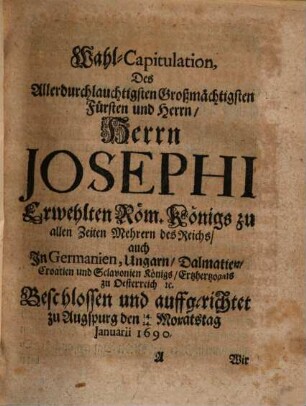 Wahl-Capitulation,
Des
Allerdurchlauchtigsten Großmächtigsten
Fürsten und Herrn/
Herrn
JOSEPHI
Erwehlten Röm. Königs zu
allen Zeiten Mehrern des Reichs/
auch
In Germanien, Ungarn/ Dalmatien/
Croatien und Sclavonien Königs/ Ertzhertzogens
zu Oesterreich ꝛc.
Beschlossen und auffgerichtet
zu Augspurg den Monatstag
Januarii 1690.
A Wir